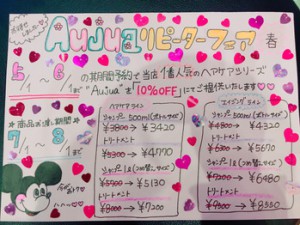 Aujuaリピーターフェア 春
5/ ~ 6/
の期間予約で当店1番人気のヘアケアシリーズ
"Aujua" を 10%OFF にてご提供いたします♡♡♡
★商品お渡し期間★
7/1 ~ 8/
ヘアケアライン
シャンプー 500ml(ボトルサイズ)
¥3800→¥3420
トリートメント
¥5300→¥4770
シャンプー 1ℓ(つめ替えサイズ)
¥5700→¥5130
トリートメント
¥8000→¥7200
エイジングライン
シャンプー 500ml(ボトルサイズ)
¥4800→¥4320
トリートメント
¥6300→¥5670
シャンプー 1ℓ(つめ替えサイズ)
¥7200→¥6480
トリートメント
→¥8550